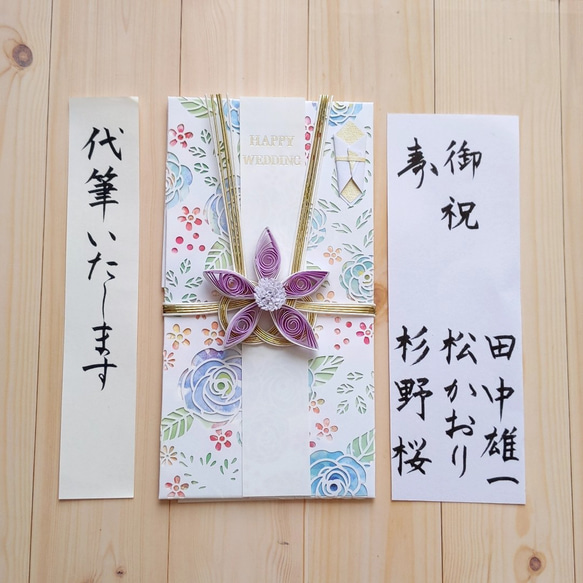 代筆いたします
HAPPY
WEDDING
御祝
寿
田中雄一
松かおり
杉野桜